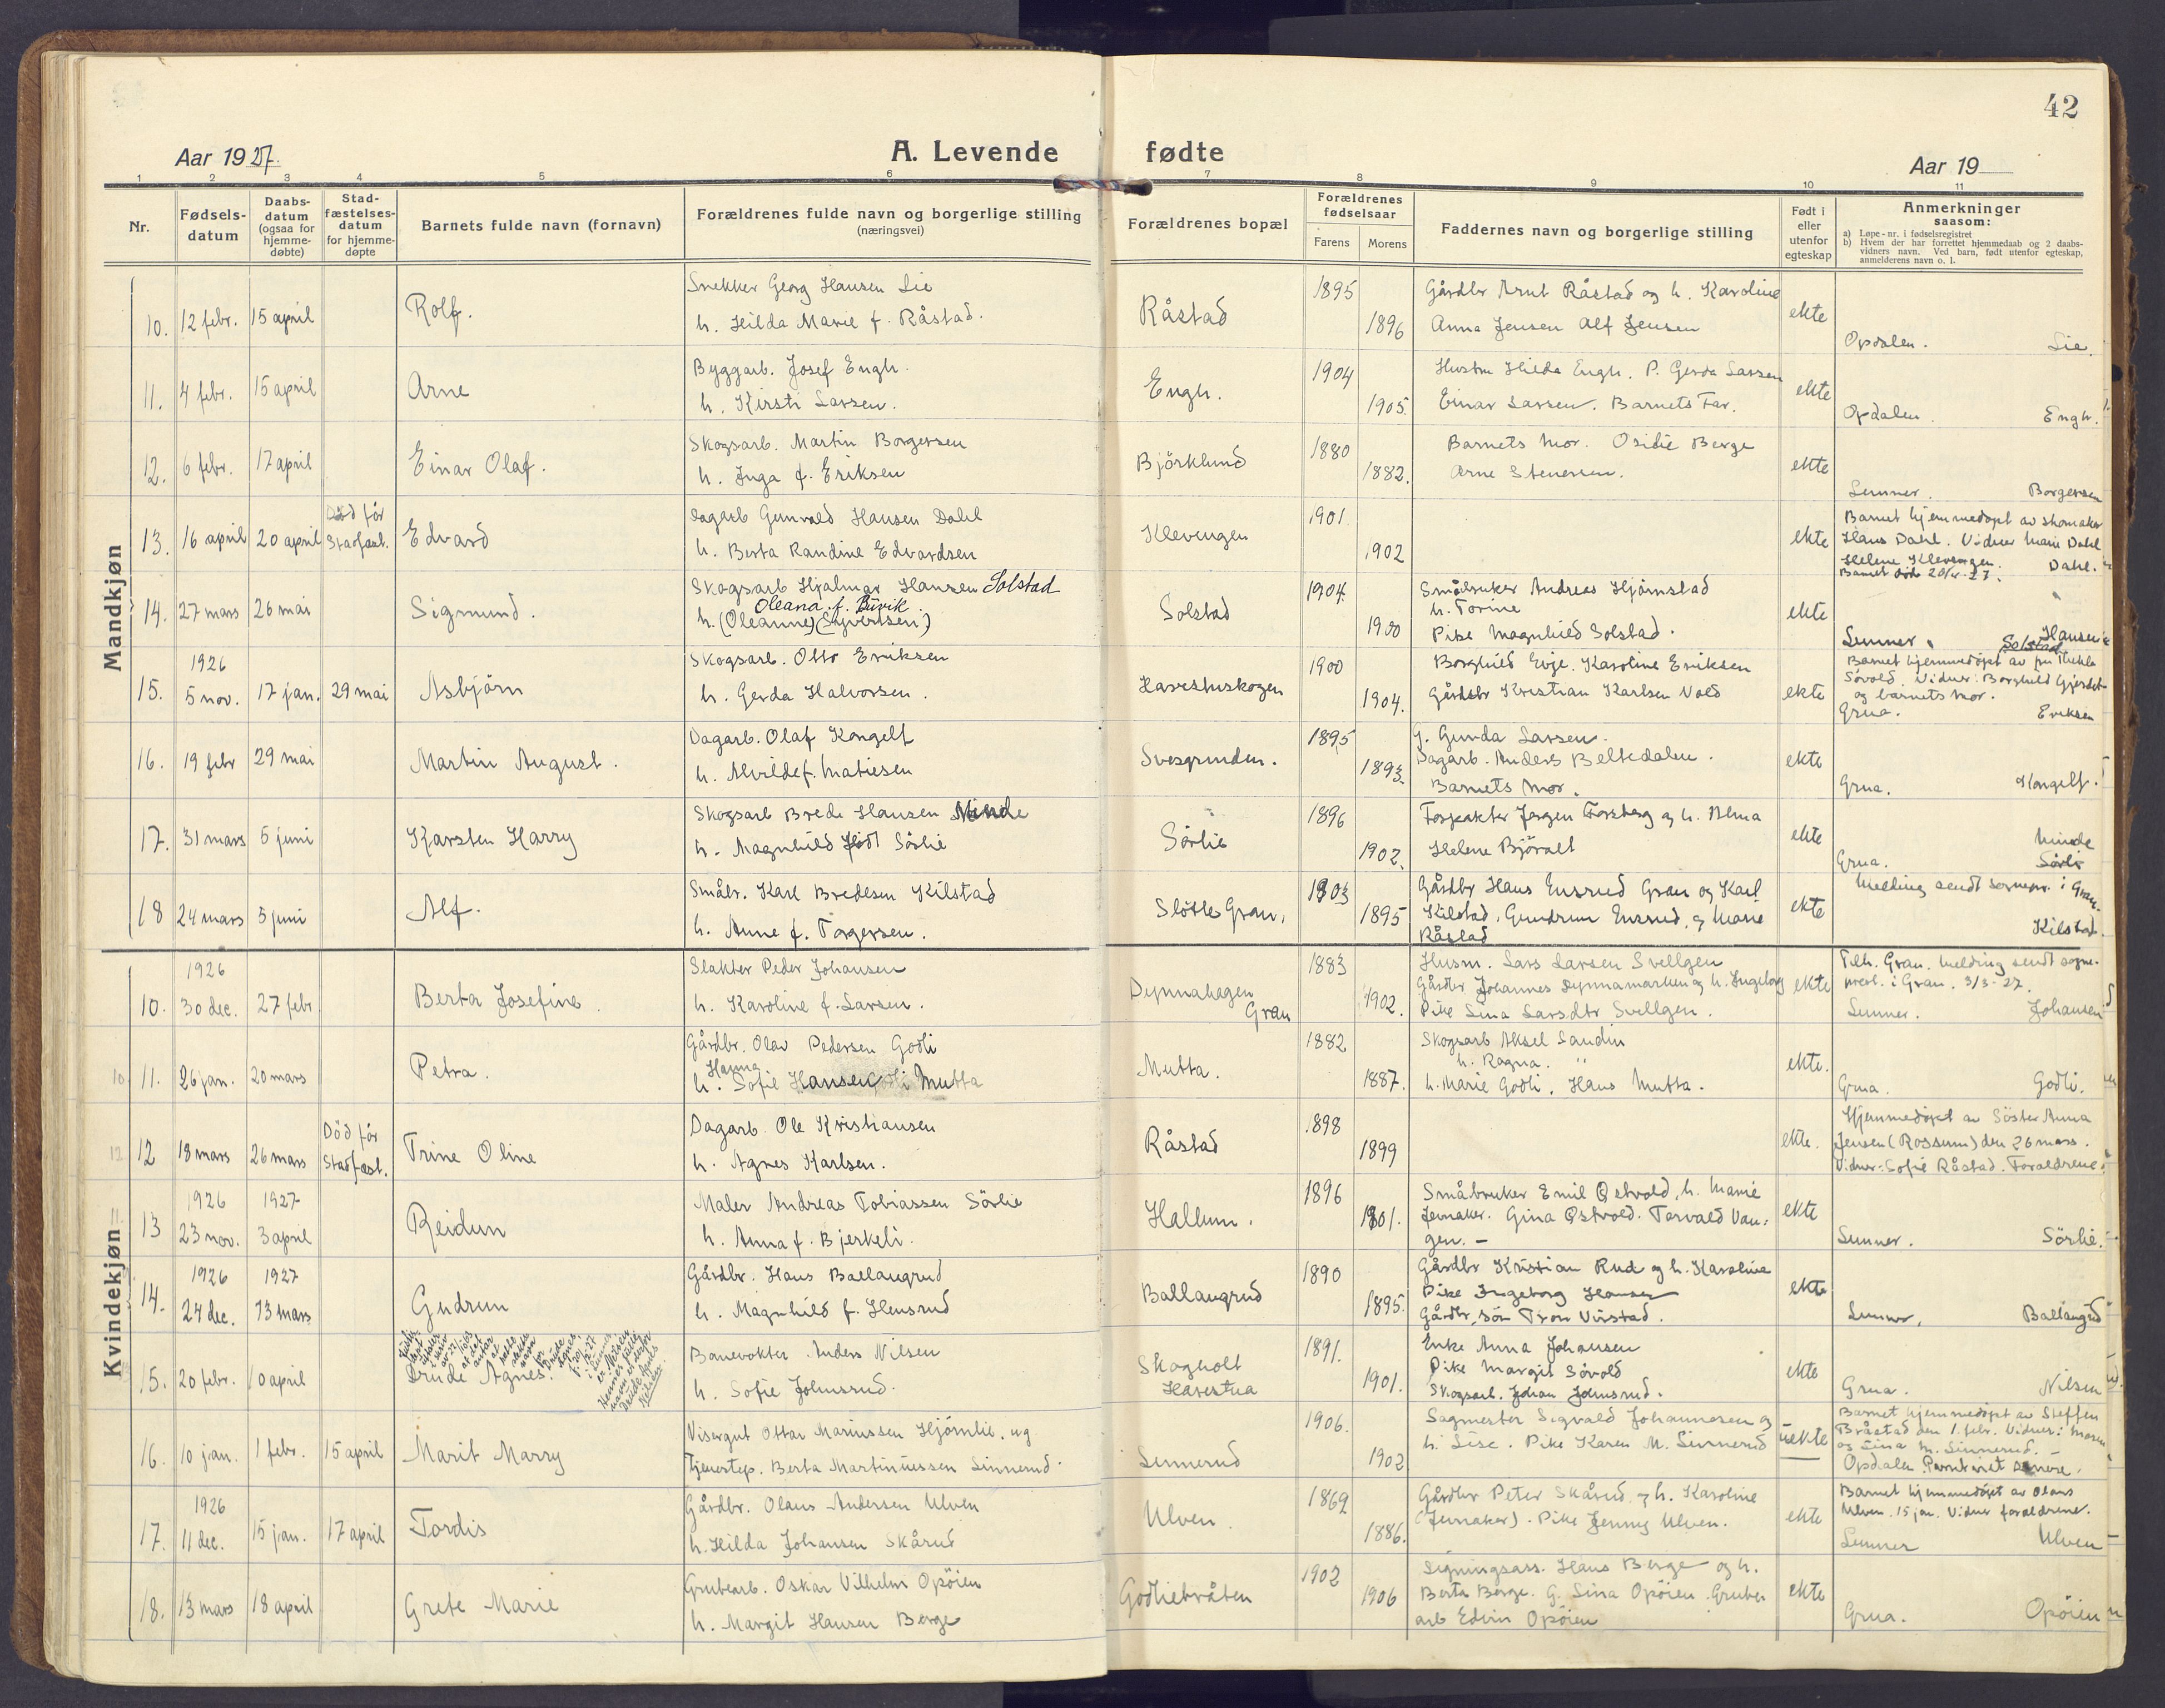 42
Aar 1927.
A. Levende fødte
Aar 19
1 2 3 4 5 6 7 8 9 10 11
Nr.
Fødsels-
datum
Daabs-
datum
(ogsaa for
hjemme-
døbte)
Stad-
fæstelses-
datum
for hjemme-
døpte
Barnets fulde navn (fornavn)
Forældrenes fulde navn og borgerlige stilling
(næringsvei)
Forældrenes bopæl
Forældrenes
fødselsaar
Farens Morens
Faddernes navn og borgerlige stilling
Født i
eller
utenfor
egteskap
Anmerkninger
saasom:
a) Løpe-nr. i fødselsregistret
b) Hvem der har forrettet hjemmedaab og 2 daabs-
vidners navn. Ved barn, født utenfor egteskap,
anmelderens navn o. l.
Mandkjøn
10. 12 febr. 15 april
Rolf.
Snekker Georg Hansen Lie
h. Hilda Marie f. Råstad.
Råstad
1895
1896
Gårdbr Arnt Råstad og h. Karoline
Anna Jensen Alf Jensen
ekte
Opdalen. Lie.
11. 4 febr. 15 april
Arne
Byggarb. Josef Engh.
h. Kirsti Larsen.
Engh.
1904
1905.
Hustru Hilda Engh. P. Gerda Larsen
Einar Larsen. Barnets Far.
ekte
Opdalen. Engh.
12. 6 febr. 17 april
Einar Olaf.
Skogsarb. Martin Borgersen
h. Inga f. Eriksen
Björklund
1880
1882.
Barnets mor. Osidie Berge
Arne Stenersen.
ekte
Lunner. Borgersen
13. 16 april 20 april
Död för
Stadfæst.
Edvard
Dagarb Gunvald Hansen Dahl
h. Berta Randine Edvardsen
Klevengen
1901
1902
ekte
Barnet hjemmedöpt av skomaker
Hans Dahl. Vidner Marie Dahl
Helene Klevengen. Dahl.
Barnet död 20/4-27.
14. 27 mars 26 mai
Sigmund.
Skogsarb Hjalmar Hansen Solstad
Oleana f. Burik
h. (Oleanne) (Syvertsen)
Solstad
1904.
1900
Småbruker Andreas Hjörnstad
h. Torine
Pike Magnhild Solstad.
ekte
Hansen
Lunner. Solstad
15. 1926
5 nov. 17 jan. 29 mai
Asbjörn
Skogsarb. Otto Eriksen
h. Gerda Halvorsen.
Harestuskogen
1900
1904.
Borghild Evje. Karoline Eriksen
Gårdbr Kristian Karlsen Vold
ekte
Barnet hjemmedöpt av fru Thekla
Sövold. Vidner: Borghild Gjerdet
og barnets mor.
Grua. Eriksen
16. 19 febr 29 mai
Martin August.
Dagarb. Olaf Kongelf
h. Alvilde f. Matiesen
Svesgrunden.
1895
1893.
G. Gunda Larsen.
Dagarb. Anders Beltedalen.
Barnets mor.
ekte
Grua. Kongelf.
17. 31 mars 5 juni
Karsten Harry
Skogsarb Brede Hansen Minde
h. Magnhild född Sörlie
Sörlie
1896
1902.
Forpakter Jörgen Forsberg og h. Alma
Helene Björalt
ekte
Minde
Grua. Sörli
18 24 mars 5 juni
Alf.
Småbr. Karl Bredesen Kilstad
h. Anne f. Torgersen.
Slötte Gran.
1903
1895
Gårdbr Hans Ensrud Gran og Karl
Kilstad, Gundrun Ensrud, og Marie
Råstad
ekte
Melding sendt sognepr. i Gran.
Kilstad.
Kvindekjøn
10. 1926
30 dec. 27 febr
Berta Josefine.
Slakter Peder Johansen
h. Karoline f. Larsen.
Dynnahagen
Gran
1883
1902.
Husm. Lars Larsen Svellgen
Gårdbr Johannes Dynnamarken og h. Ingeborg
Pike Lina Larsdtr Svellgen.
ekte
Tilh. Gran. Melding sendt sogne-
prest. i Gran. 3/3-27.
Lunner. Johansen
10 11. 26 jan. 20 mars
Petra.
Gårdbr. Olav Pedersen Godli
Hanna
h. Sofie Hansen Mutta
Mutta.
1882
1887.
Skogsarb Aksel Sandin
h. Ragna. "
h. Marie Godli. Hans Mutta.
ekte.
Grua. Godli.
12 12 18 mars 26 mars
Död för
Stadfæst.
Trine Oline
Dagarb. Ole Kristiansen
h. Agnes Karlsen.
Råstad
1898
1899
ekte.
Hjemmedöpt av Söster Anna
Jensen (Rossum) den 26 mars.
Vidner: Sofie Råstad. Foraldrene.
11 13 1926 1927
23 nov. 3 april
Reidun
Maler Andreas Tobiassen Sörlie
h. Anna f. Bjerkeli.
Hallum.
1896
1901.
Småbruker Emil Østvold, h. Marie
Jevnaker. Gina Østvold. Torvald Van-
gen. —
ekte
Lunner. Sörlie.
14. 1926 1927
24 dec. 13 mars
Gudrun
Gårdbr. Hans Ballangrud
h. Magnhild f. Hensrud
Ballangrud
1890
1895.
Gårdbr Kristian Rud og h. Karoline
Pike Ingeborg Hansen
Gårdbr. sön Tron Virstad.
ekte
Lunner. Ballangrud
15. 20 febr. 10 april
Drude Agnes.
Banevokter Anders Nilsen
h. Sofie Johnsrud.
Skogholt
Harestua
1891.
1901.
Enke Anna Johansen
Pike Margit Sövold
Skogsarb. Johan Johnsrud.
ekte
Grua. Nilsen
16. 10 jan. 1 febr. 15 april
Marit Marry
Visergut Ottar Mariussen Hjörnlie. ug
Tjenestep. Berta Martinuessen Linnerud.
Linnerud
1906.
1902
Sagmester Sigvald Johannesen og
h. Lise. Pike Karen M. Linnerud
uekte
Barnet hjemmedöpt av Steffen
Bråstad den 1. febr. Vidner: moren
og Lina M. Linnerud. —
Opdalen.
17. 1926
11 dec. 15 jan. 17 april
Tordis
Gårdbr. Olaus Andersen Ulven
h. Hilda Johansen Skårud
Ulven.
1869
1886.
Gårdbr Peter Skårud og h. Karoline
(Jevnaker). Pike Jenny Ulven.
ekte
Barnet hjemmedöpt av Olaus
Ulven. 15 jan. Vidner foraldrene.
Lunner Ulven
18. 13 mars 18 april
Grete Marie
Grubearb. Oskar Vilhelm Opöien
h. Margit Hansen Berge
Godlietråten
1902
1906
Signingsass. Hans Berge og h.
Berta Berge. G. Lina Opöien. Gruber
arb Edvin Opöien
ekte
Grua. Opöien